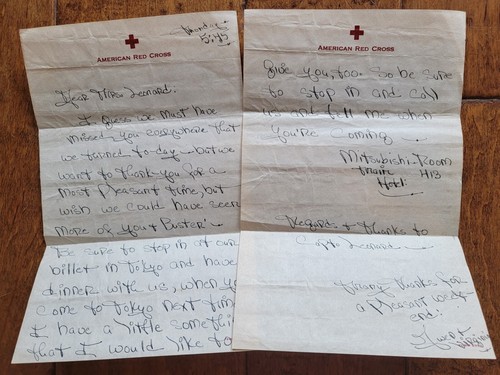 Monday
5:45
AMERICAN RED CROSS
Dear Mrs Leonard:
I guess we must have
missed you everywhere that
we turned to-day - but we
want to thank you for a
most pleasant time, but
wish we could have seen
more of you & Buster.
Be sure to stop in at our
billet in Tokyo and have
dinner with us, when you
come to Tokyo next time
I have a little somethi
that I would like to
AMERICAN RED CROSS
give you, too. So be sure
to stop in and call
us and tell me when
you're coming
Mitsubishi Room
Main H13
Hotel
Regards & thanks to
Capt. Leonard
Many thanks for
a pleasant week
end.
Gwen &
Virginia